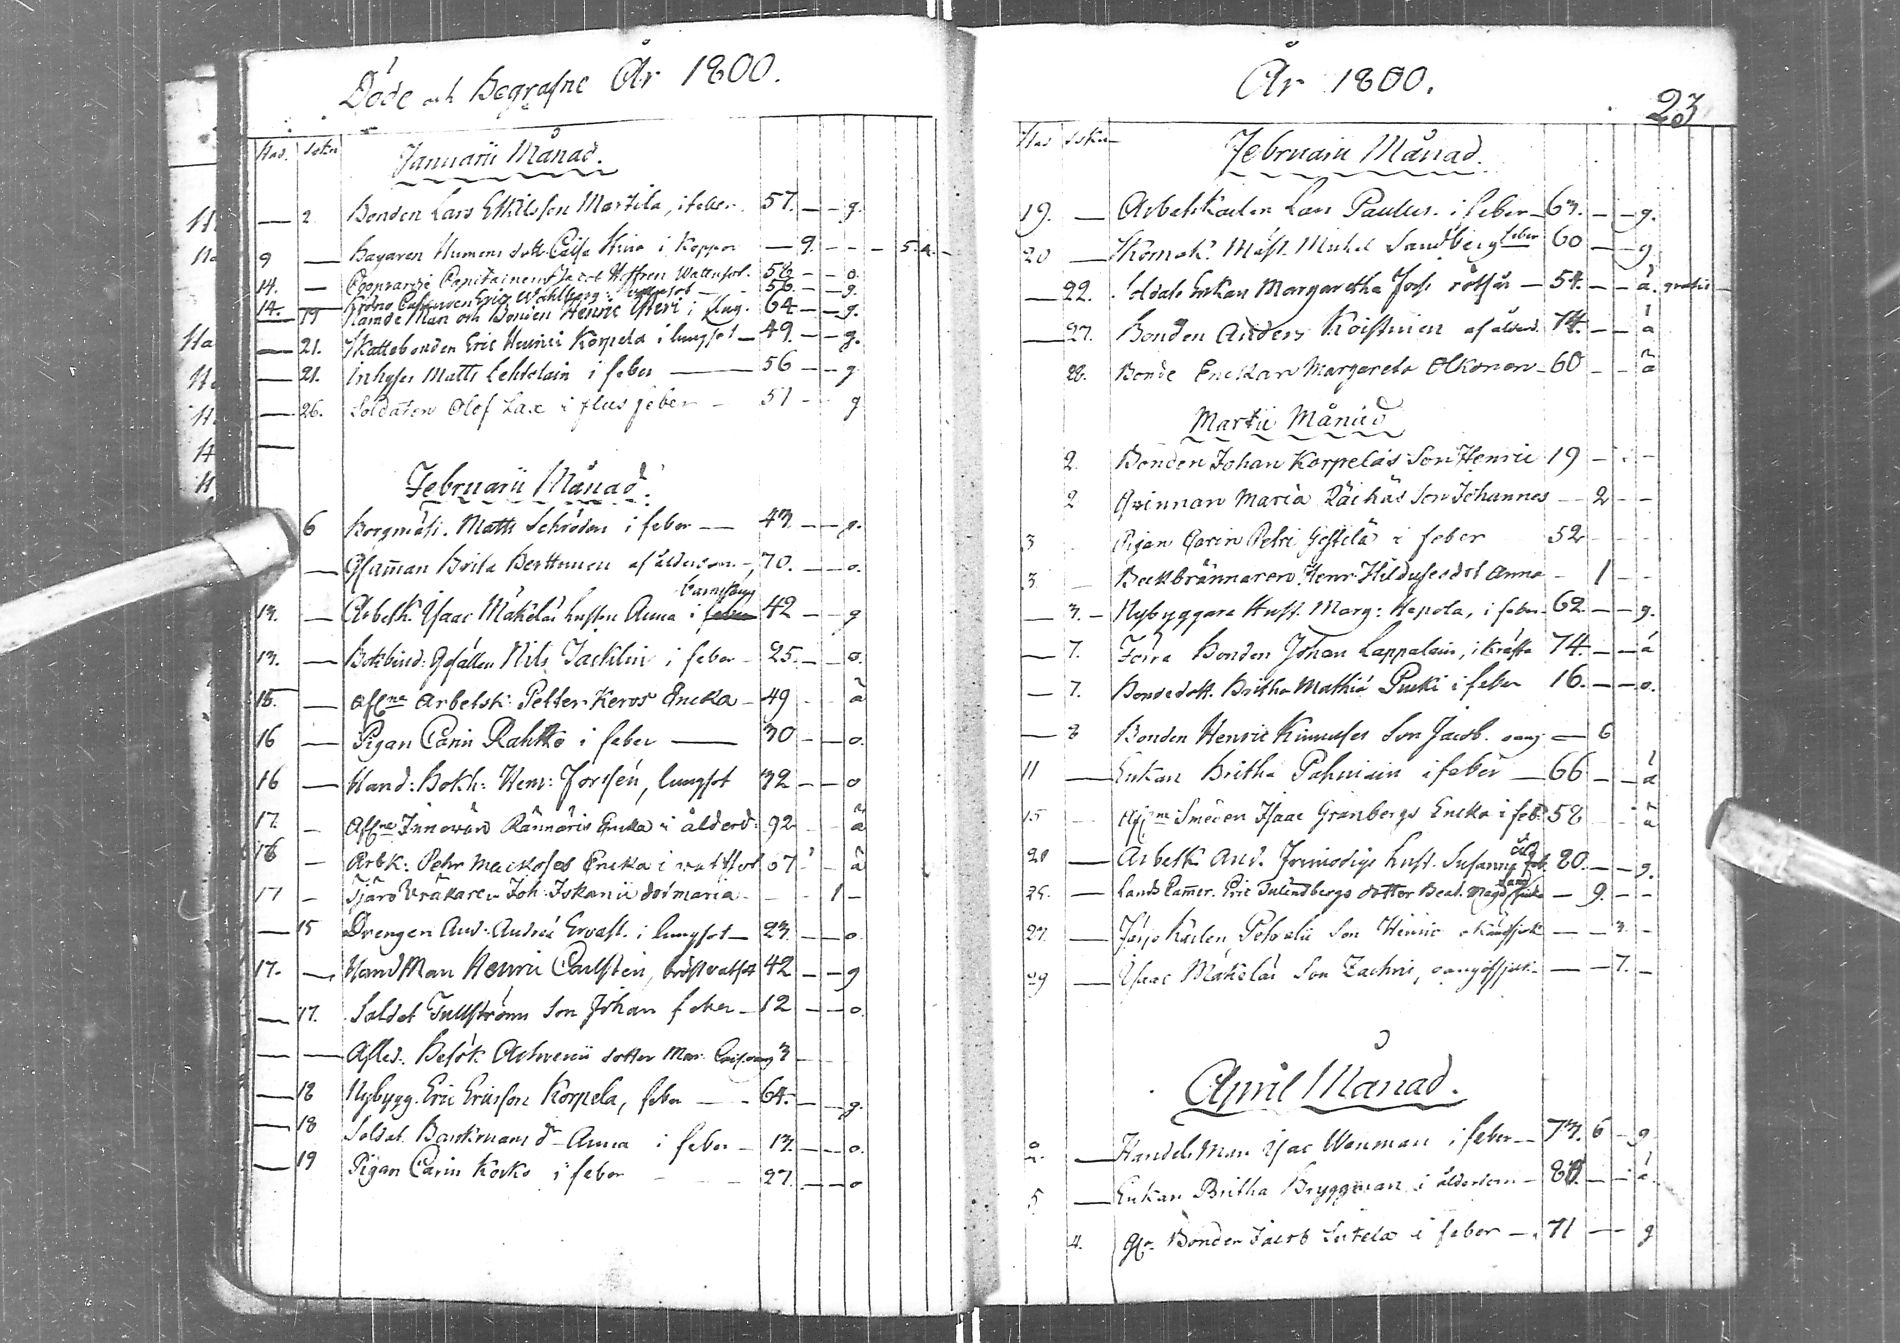 Döde och Begrafne År 1800.
Stad. Sokn
Januarii Månad.
— 2 Bonden Lars Eskilsson Martila, i feber. 57. — — g.
9 — Bagaren Humens dott. Caisa Stina i Koppor — 9. — — — 5. a. —
14. — Capitainen Jacob Hoffren Wattusot. 56 — — o.
14. — Eric Wahlberg 56. — — g.
— 19 Nämde Man och Bonden Henric Yliteri i flug. 64 — — g.
— 21. Skattebonden Eric Henrici Korpela i lungsot — 49. — — g.
— 21. Inhyses Matts Lehtolain i feber — 56 — — g
— 26. Soldaten Olof Lax i flusfeber — 51 — — g
Februarii Månad.
6 Borgmäst. Matts Schröder i feber — 43 — — g.
— Gl. Britha Berttunen af ålderdom — 70. — — o.
barnsbörd
13. — Arbetk. Isaac Mäkeläs hustru Anna i feber 42 — — g
13. — Bokbind: Gesällen Nils Jacklin i feber — 25. — — o.
15. — Aflne Arbetsk. Petter Keros Encka — 49 — — ä
16 — Pigan Carin Rahkko i feber — 30 — — o.
16 — Hand: Bokh: Henr: Forssén, lungsot 32 — — o
17. — Aflne Rännäris Encka i ålderd. 92 — — ä
16 — Arbk: Pehr Mackoses Encka i vattsot 57 — ä
17 — Tjärd Vräkaren Joh. Iskanii dot maria — — 1 —
— 15 Drengen And. Andreé Ervast. i lungsot — 23. — — o.
17. — Hand Man Henric Carlsten, bröstvatsot 42 — — g
— 17. Soldat Tullströms Son Johan feber — 12 — — o.
— — Afled. Besök. Achrenii dotter Mar. Cais. 3 — —
— 18 Nybygg. Eric Ericsson Korpela, feber — — 64. — — g.
— 18 Soldat. Backmans dr Anna i feber — 13. — — o.
— 19 Pigan Carin Korko i feber — — 27. — — o
År 1800.
23
Stad Sokn
Februarii Månad.
19. — Arbetskarlen Lars Paulus. i feber — 63. — — g.
20 — Skomak. Mäst. Michel Sandberg feber 60 — — g
— 22. Soldats Enkan Margaretha Foss rötfeb — 54. — — ä. gratis —
— 27. Bonden Anders Koistinen af ålderd. 74. — — ä
28. Bonde Enckan Margareta Olkonen — 60 — — ä
Martii Månad
2. Bonden Johan Korpelas Son Henric 19 — — —
2 Qvinnan Maria Räihäs Son Johannes — 2 — —
3 Pigan Carin Petri i feber 52 — — —
3. — Beckbrännaren Henr. dot Anna — 1 — —
— 3. Nybyggare Hust. Marg: Hepola, i feber — 62 — — g.
— 7. Förra Bonden Johan Lappalain, i kräfta 74. — — ä
— 7. Bondedott. Britha Mathiæ Pucki i feber 16. — — o.
— 8 Bonden Henric Kinnuses Son Jacob. — 6
11 — Enkan Britha Pahniain i feber — 66 — — ä
15 — Aflne Smeden Isaac Granbergs Encka i feb. 58 — — ä
20 — Arbetk And. Frimodigs hust. Susanna feb. 80. — — g.
25. — Lands Camer. Eric dotter Beat. Magd. — 9. — —
27. — Färjo Karlen Son Henric okändsjuk — — 3. —
29 — Isaac Mäkeläs Son Zachris, — — 7. —
April Månad.
2. — Handels Man Isac Wenman i feber — 73. 6 — g
5 — Enkan Britha Bryggman i ålderdom — 80. — — ä.
4. Gl. Bonden Jacob Sutela i feber — 71 — — g